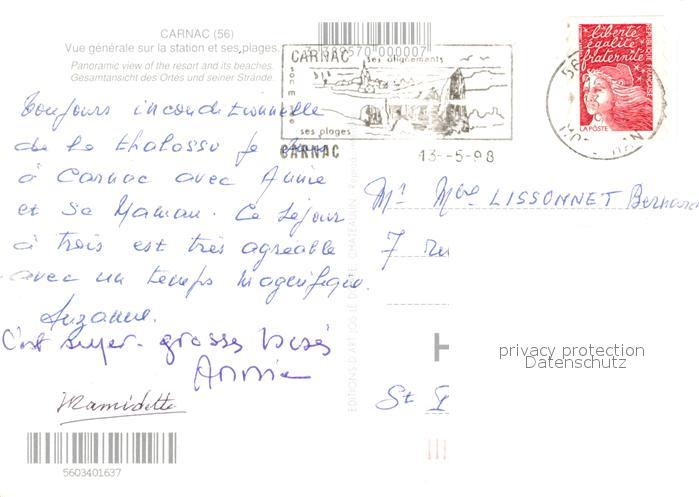 CARNAC (56)
Vue générale sur la station et ses plages.
Panoramic view of the resort and its beaches.
Gesamtansicht des Ortes und seiner Strände.
Toujours inconditionnelle
de la thalasso je
à Carnac avec Annie
et sa Maman. Ce séjour
à trois est très agréable
avec un temps magnifique.
Suzanne.
C'est super. grosses bises
Annie
Mamidette
5603401637
3 389570 000007
CARNAC ses alignements
son
ses plages
CARNAC
13-5-98
liberté
égalité
fraternité
LA POSTE
Mr Mme LISSONNET Bernard
7 ru
St
privacy protection
Datenschutz